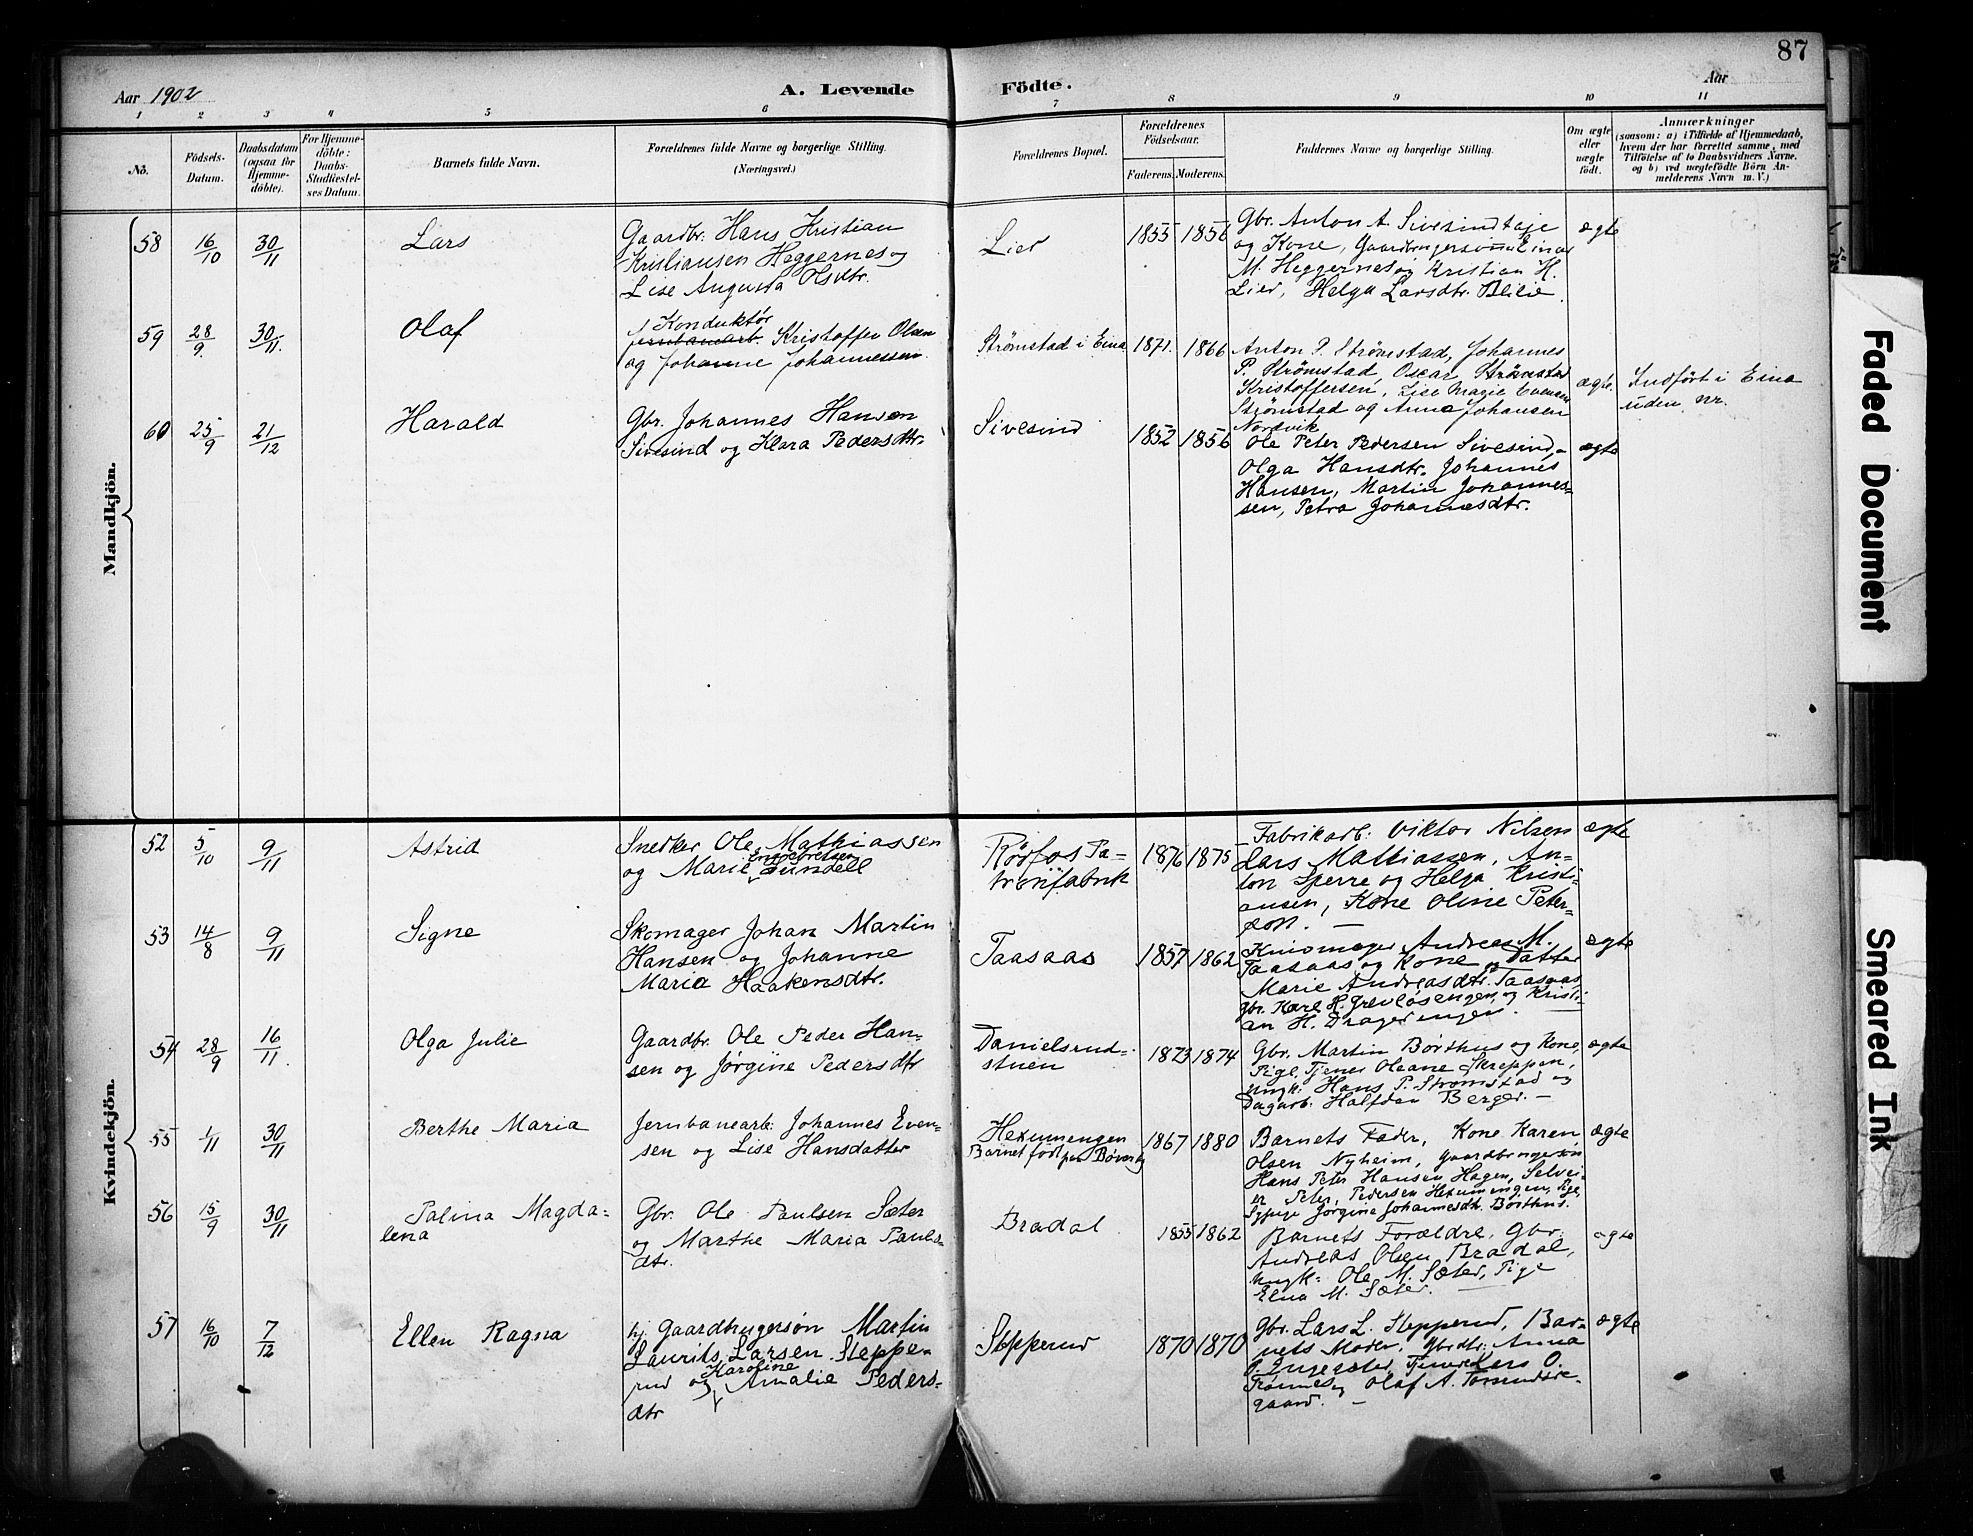 87
Aar 1902
A. Levende Födte.
Aar
1 2 3 4 5 6 7 8 9 10 11
No.
Födsels-
Datum.
Daabsdatum
(ogsaa for
Hjemme-
döbte).
For Hjemme-
döbte:
Daabs-
Stadfæstel-
ses Datum.
Barnets fulde Navn.
Forældrenes fulde Navne og borgerlige Stilling.
(Næringsvei.)
Forældrenes Bopæl.
Forældrenes
Födselsaar.
Faderens. Moderens.
Faddernes Navne og borgerlige Stilling.
Om ægte
eller
uægte
födt.
Anmærkninger
(saasom: a) i Tilfælde af Hjemmedaab,
hvem der har forrettet samme, med
Tilföielse af to Daabsvidners Navne.
og b) ved uægtefödte Börn An-
melderens Navn m. V.)
Mandkjön.
58 16/10 30/11
Lars
Gaardbr. Hans Kristian
Kristiansen Heggernes og
Lise Augusta Olsdtr.
Lier
1855 1856
Gbr. Anton A. Sivesindtaje
og Kone, Gaardbrugersøn Einar
M. Heggernes og Kristian H.
Lier, Helga Larsdtr. Blilie.
ægte
59 28/9 30/11.
Olaf
Konduktør
Jernbanearb. Kristoffer Olsen
og Johanne Johannessen
Strømstad i Eina
1871. 1866
Anton P. Strømstad, Johannes
P. Strømstad Oscar Strømstad
Kristoffersen, Lise Marie Evensen
Strømstad og Anna Johansen
Nordvik
ægte.
Indført i Eina
uden nr.
60 25/9 21/12
Harald
Gbr. Johannes Hansen
Sivesind og Klara Pedersdtr.
Sivesind
1852 1856
Ole Peter Pedersen Sivesind,
Olga Hansdtr. Johannes
Hansen, Martin Johannes-
sen, Petra Johannesdtr.
ægte
Kvindekjön.
52 5/10 9/11
Astrid
Snedker Ole Mathiassen
og Marie Engebretsen Lundell
Røsfos Pa-
tronfabrik
1876 1875
Fabrikarb: Viktor Nilsen
Lars Mattiassen, An-
ton Sperre og Helga Kristi-
ansen, Kone Oline Peter-
son. —
ægte
53 14/8 9/11
Signe
Skomager Johan Martin
Hansen og Johanne
Maria Haakensdtr.
Taasaas
1857 1862
Knivmager Andreas M.
Taasaas og Kone og Datter
Marie Andreasdtr. Taasaas
gbr. Karl H. Grevløsengen og Kristi-
an H. Drageringen. —
ægte
54 28/9 16/11
Olga Julie
Gaardbr. Ole Peder Han-
sen og Jørgine Pedersdtr
Danielsrud-
stuen
1873 1874
Gbr. Martin Børthus og Kone,
Pige, Tjener Oleane Skreppen,
ungk: Hans P. Strømstad og
Dagarb: Halfdan Berger. —
ægte
55 1/11 30/11
Berthe Maria
Jernbanearb: Johannes Even-
sen og Lise Hansdatter
Hexumengen
Barnet født paa Bøverby
1867 1880
Barnets Fader, Kone Karen
Olsen Nyheim, gaardbrugersøn
Hans Peter Hansen Hagen, Selvei-
er Peter Pedersen Hexumengen, Pige,
Sypige Jørgine Johannesdtr. Børthus.
ægte
56 15/9 30/11
Palina Magda-
lena
Gbr. Ole Paulsen Sæter
og Marthe Maria Pauls-
dtr.
Bradal
1855 1862
Barnets Forældre, Gbr.
Andreas Olsen Bradal,
ungk: Ole M. Sæter, Pige
Elna M. Sæter. —
ægte
57 16/10 7/12
Ellen Ragna
hj Gaardbrugersøn Martin
Laurits Larsen Steppe-
rud og Karoline Amalie Peders-
dtr
Stepperud
1870 1870
Gbr. Lars L. Stepperud, Bar-
nets Moder, Gbrdtr. Anna
P. Engesæter, Lars O.
Trønnes og Olaf A.
gaard. —
ægte
Faded Document
Smeared Ink